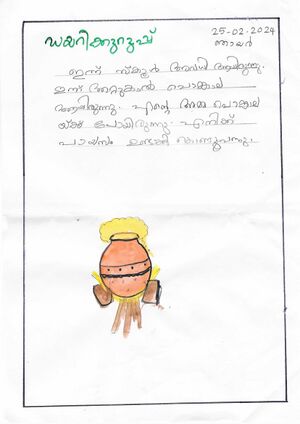 ഡയറിക്കുറുപ്പ്
25-02-2024
ഞായർ
ഇന്ന് സ്കൂൾ അവധി ആയിരുന്നു.
ഇന്ന് ആറ്റുകാൽ പൊങ്കാല
ആയിരുന്നു. എന്റെ അമ്മ പൊങ്കാല
യ്ക്ക് പോയിരുന്നു. എനിക്ക്
പായസം കൊണ്ടുവന്നു.